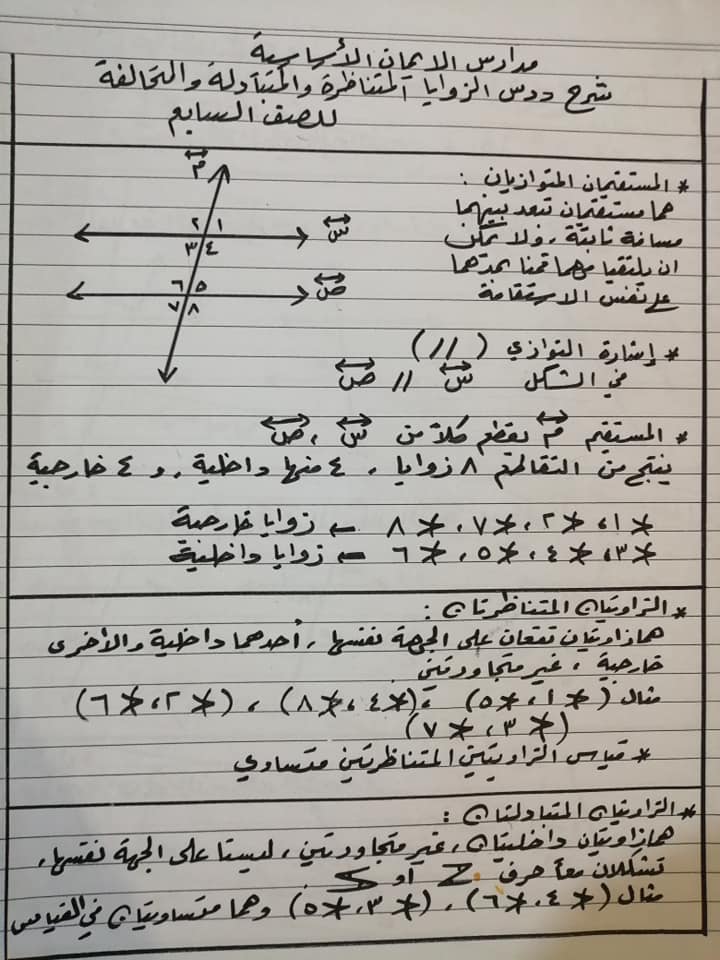 مدارس الإيمان الأساسية
شرح درس الزوايا المتناظرة والمتبادلة والتحالفة
للصف السابع
* المستقيمان المتوازيان :
هما مستقيمان تبعد بينهما
مسافة ثابتة، ولا يمكن
ان يلتقيا مهما قمنا بمدهما
على نفس الاستقامة
م
س
ص
٢ ١
٣ ٤
٦ ٥
٧ ٨
* إشارة التوازي (//)
في الشكل س // ص
* المستقيم م يقطع كلاً من س ، ص
ينتج من التقاطع ٨ زوايا ، ٤ منها داخلية ، و ٤ خارجية
∢١، ∢٢، ∢٧، ∢٨ ← زوايا خارجية
∢٣، ∢٤، ∢٥، ∢٦ ← زوايا داخلية
* الزاويتان المتناظرتان :
هما زاويتان تقعان على الجهة نفسها ، أحدهما داخلية والأخرى
خارجية ، غير متجاورتين
مثال (∢١، ∢٥) ، (∢٤، ∢٨) ، (∢٢، ∢٦)
(∢٣، ∢٧)
* قياس الزاويتين المتناظرتين متساوي
* الزاويتان المتبادلتان :
هما زاويتان داخليتان، غير متجاورتين ، ليستا على الجهة نفسها،
تشكلان معاً حرف Z أو S
مثال (∢٤، ∢٦) ، (∢٣، ∢٥) وهما متساويتان في القياس